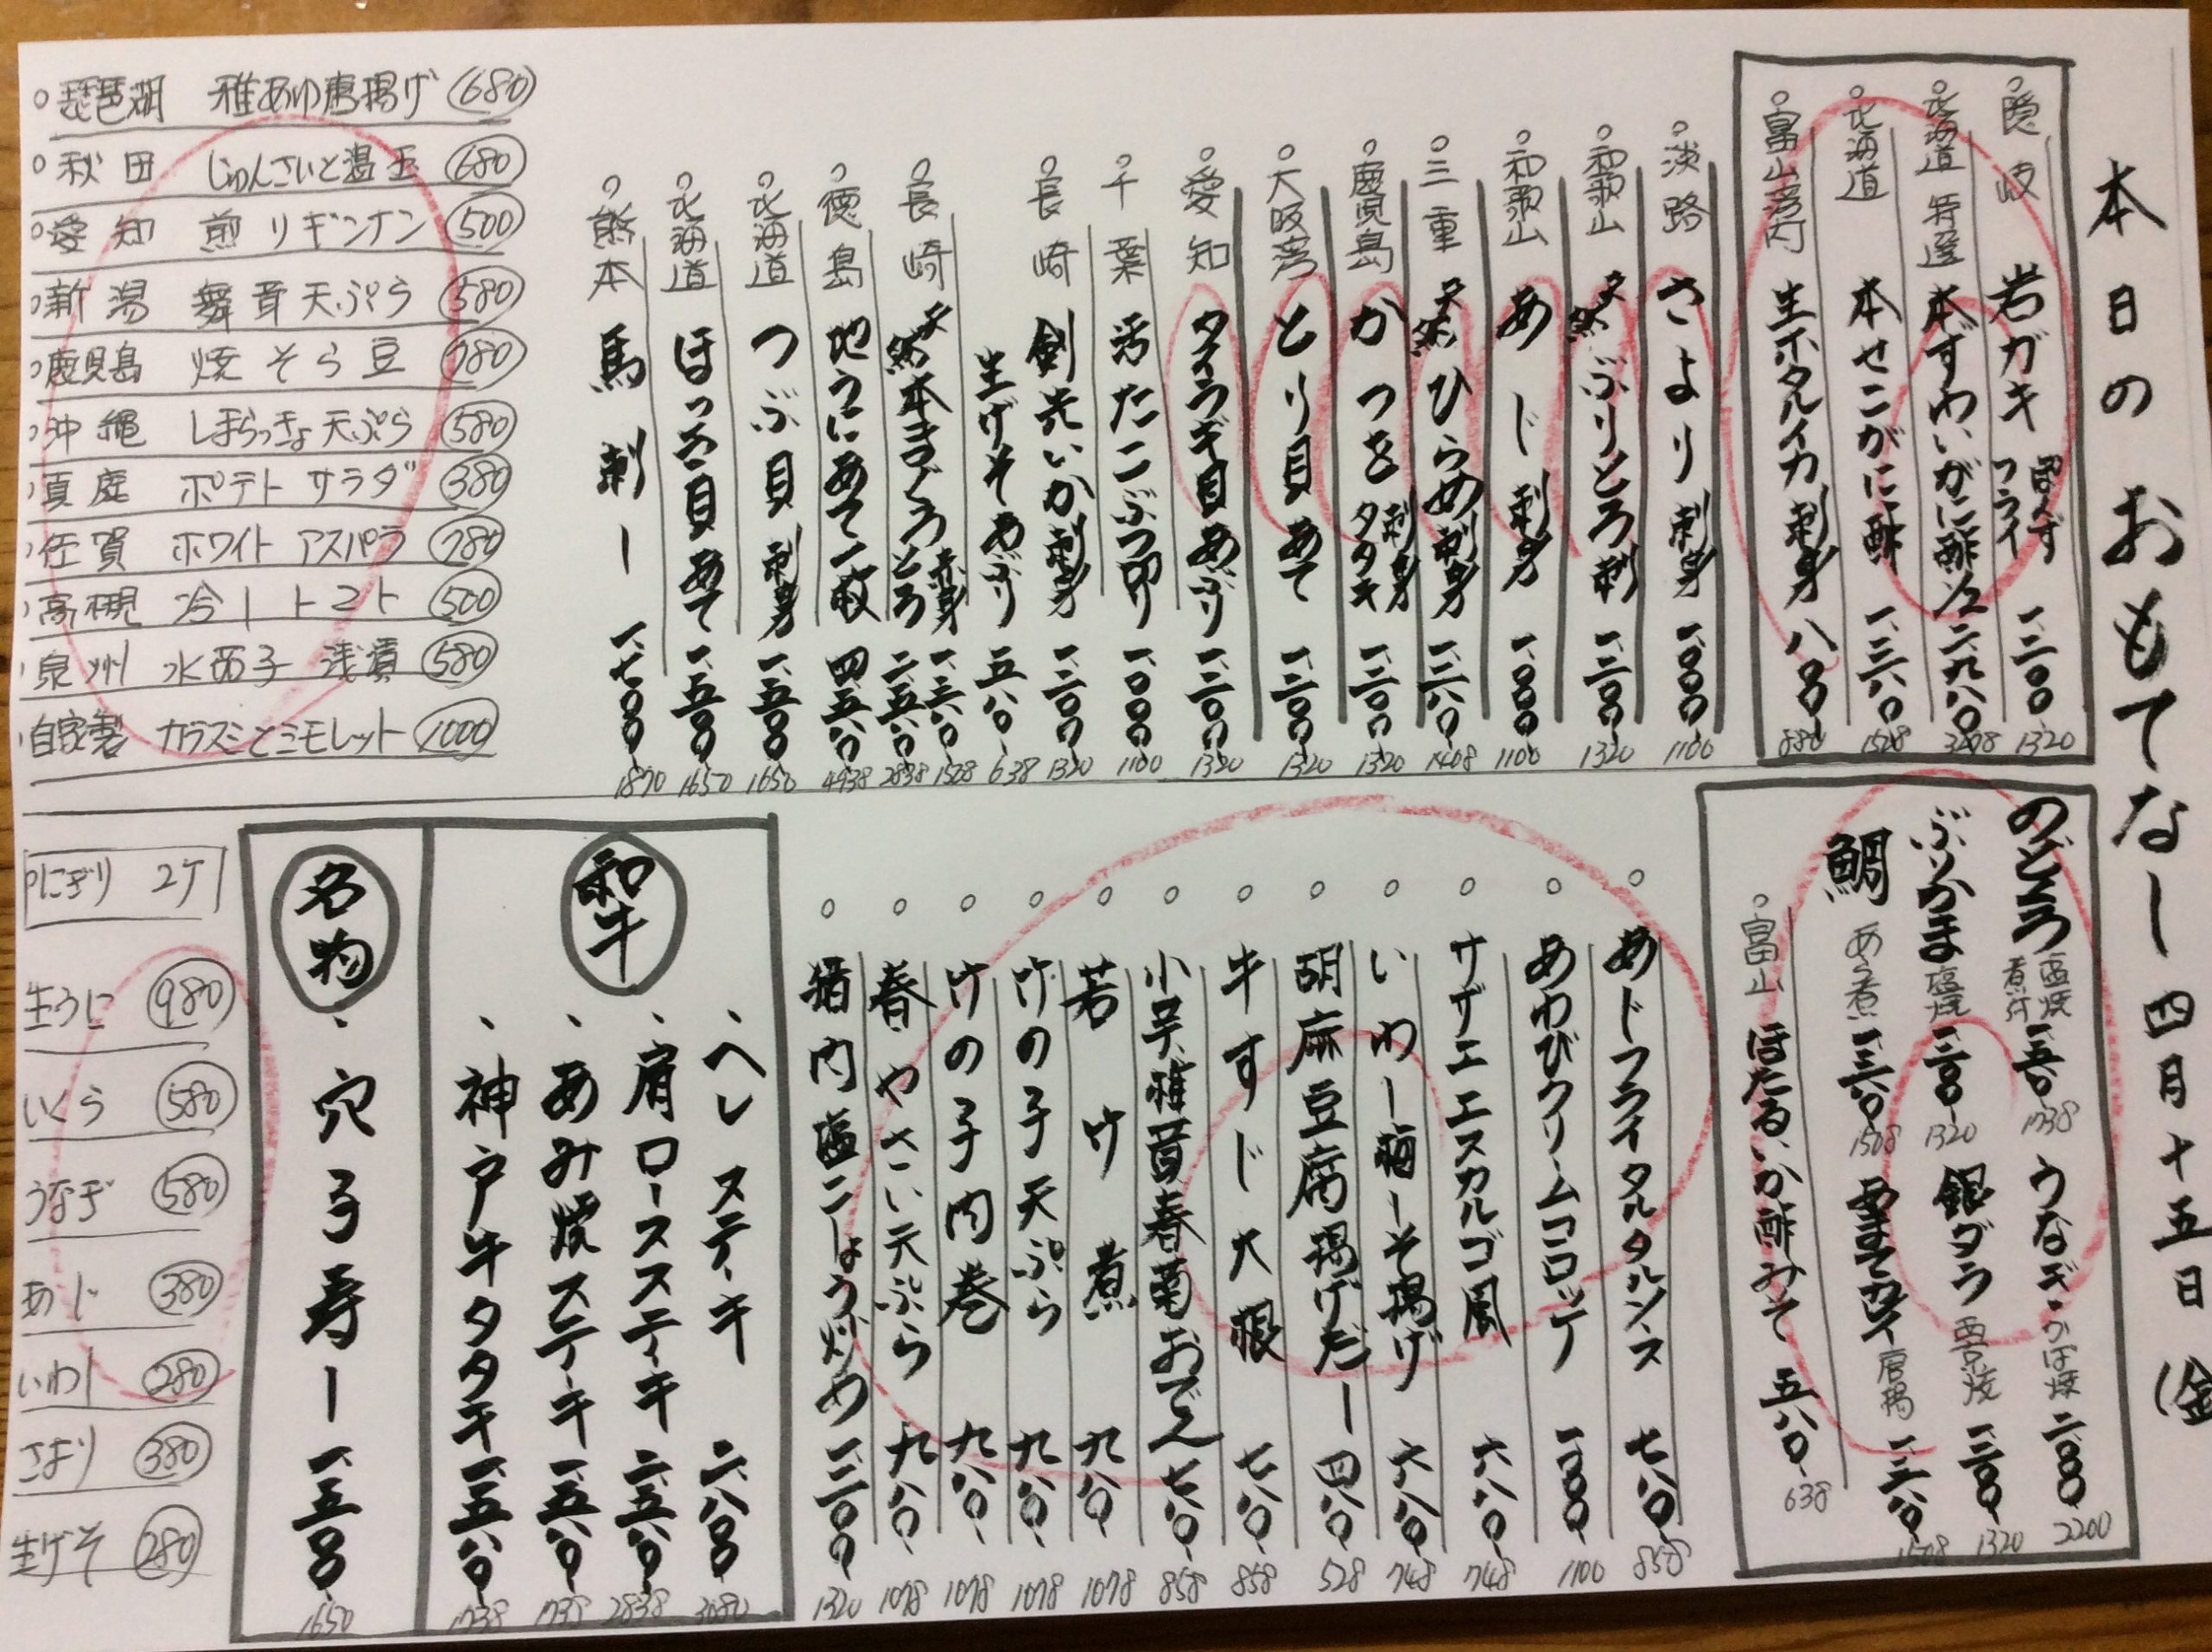 本日のおもてなし 四月十五日(金
隠岐 岩ガキ ぽんず フライ 一、二〇〇 1320
北海道 特選 本ずわいがに酢 1/2 二、九八〇 3278
北海道 本せこがに酢 一、三八〇 1518
富山湾内 生ホタルイカ刺身 八〇〇 880
淡路 さより刺身 一、〇〇〇 1100
和歌山 天然ぶりとろ刺 一、二〇〇 1320
和歌山 あじ刺身 一、〇〇〇 1100
三重 天然ひらめ刺身 一、二八〇 1408
鹿児島 かつを 刺身 タタキ 一、二〇〇 1320
大阪湾 とり貝あて 一、二〇〇 1320
愛知 タイラギ貝あぶり 一、二〇〇 1320
千葉 活たこぶつ切り 一、〇〇〇 1100
長崎 剣先いか刺身 一、二〇〇 1320
生げそあぶり 五八〇 638
長崎 天然本まぐろ 赤身 一、三八〇 1518
とろ 二、五八〇 2838
徳島 地うにあて一枚 四、五八〇 4938
北海道 つぶ貝刺身 一、五〇〇 1650
北海道 ほっき貝あて 一、五〇〇 1650
熊本 馬刺し 一、七〇〇 1870
琵琶湖 稚あゆ唐揚げ 680
秋田 じゅんさいと温玉 680
愛知 煎りギンナン 500
新潟 舞茸天ぷら 580
鹿児島 焼そら豆 780
沖縄 しまらっきょ天ぷら 580
真庭 ポテトサラダ 380
佐賀 ホワイトアスパラ 780
高槻 冷しトマト 500
泉州 水茄子 浅漬 580
自家製 カラスミとミモレット 1000
のどぐろ 塩焼 煮付 一、五八〇 1738
うなぎ かば焼 二、〇〇〇 2200
ぶりかま 塩焼 一、二〇〇 1320
銀ダラ 西京焼 一、二〇〇 1320
鯛 あら煮 一、三八〇 1518
あまてガレイ 唐揚 一、三八〇 1518
富山 ほたるいか酢みそ 五八〇 638
あじフライタルタルソース 七八〇 858
あわびクリームコロッケ 一、〇〇〇 1100
サザエエスカルゴ風 六八〇 748
いわし梅しそ揚げ 六八〇 748
胡麻豆腐揚げだし 四八〇 528
牛すじ大根 七八〇 858
小芋椎茸春菊おでん 七八〇 858
若竹煮 九八〇 1078
竹の子天ぷら 九八〇 1078
竹の子肉巻 九八〇 1078
春やさい天ぷら 九八〇 1078
猪肉塩こしょう炒め 一、二〇〇 1320
和牛
ヘレステーキ 二、八〇〇 3080
肩ロースステーキ 二、五八〇 2838
あみ焼ステーキ 一、五八〇 1738
神戸牛タタキ 一、五八〇 1738
名物
穴子寿し 一、五〇〇 1650
にぎり 2ケ
生うに 980
いくら 580
うなぎ 580
あじ 380
いわし 280
さより 380
生げそ 280